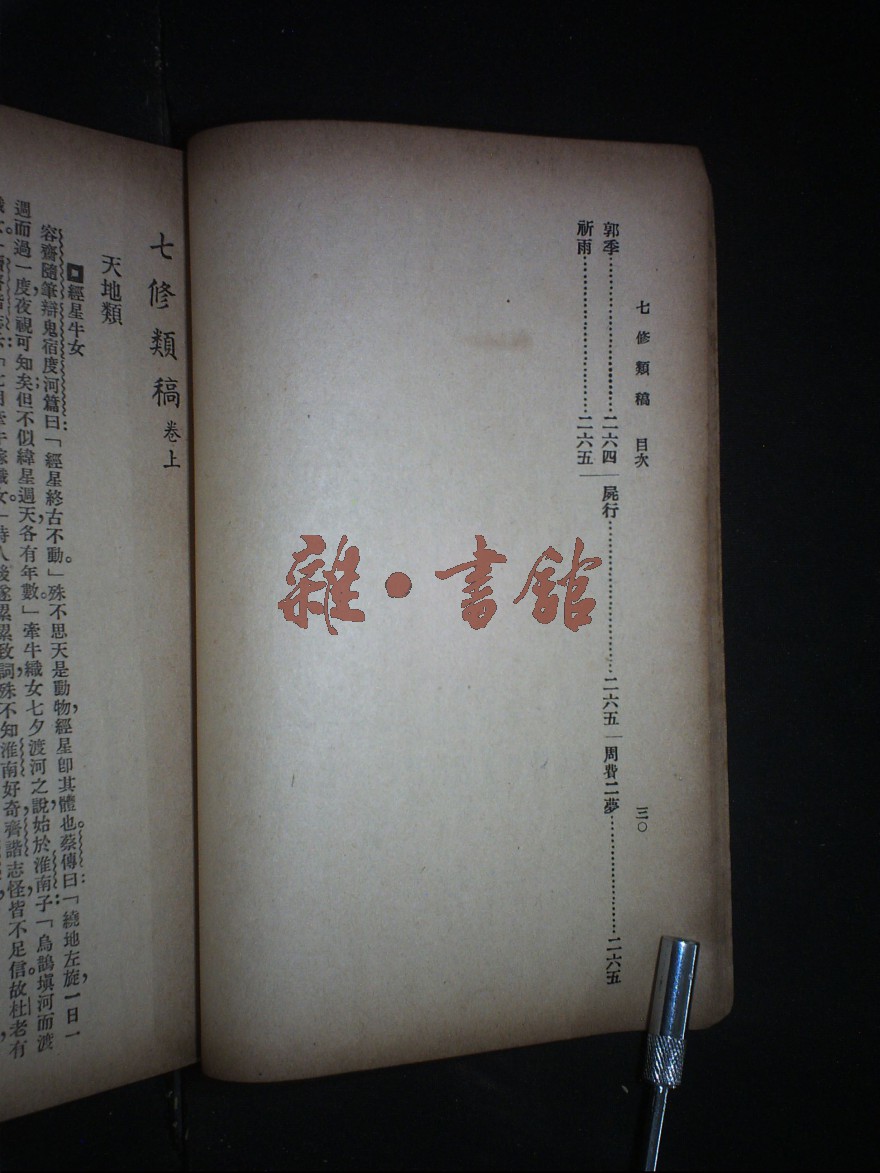 七修類稿 目次 三〇
郭季……二六四
祈雨……二六五
屍行……二六五
周費二夢……二六五
雜·書館
七修類稿 卷上
天地類
經星牛女
容齋隨筆辯鬼宿度河篇曰:「經星終古不動。」殊不思天是動物,經星卽其體也。蔡傳曰:「繞地左旋,一日一
週而過一度。」夜視可知矣;但不似緯星週天,各有年數。」牽牛織女七夕渡河之說,始於淮南子「烏鵲塡河而渡
女」時人
殊不知淮南好奇,齊諧志怪,皆不足信。故杜老有